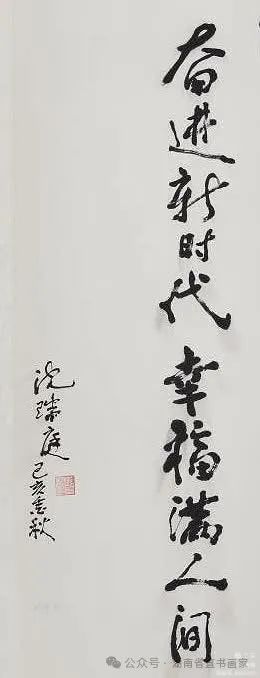 奋进新时代 幸福满人间
沈 庭 己亥 秋
公众号 · 湖南省直书画家